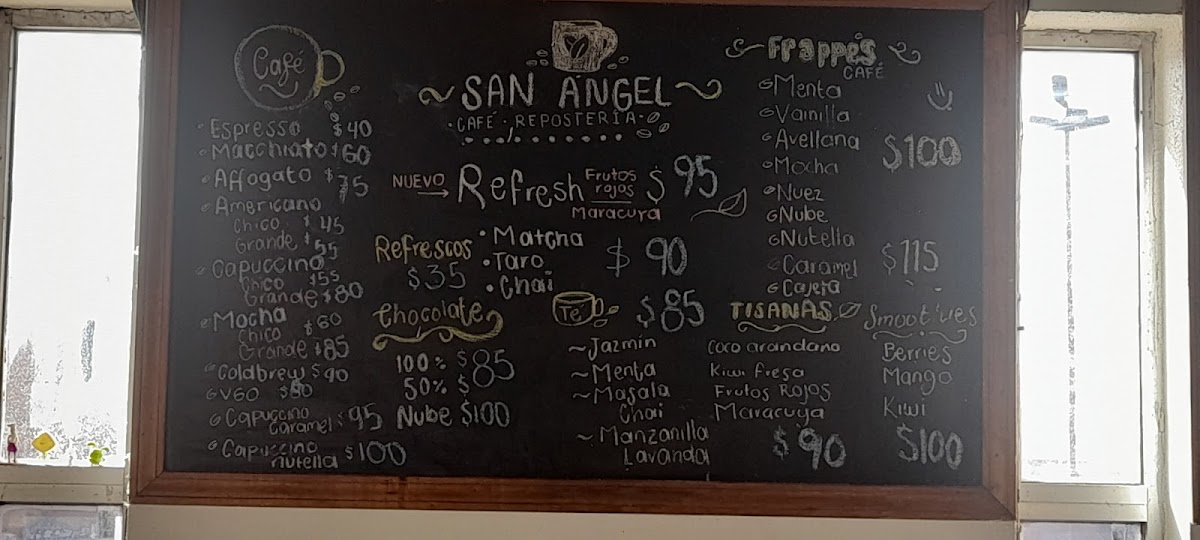 Café
Espresso $40
Macchiato $60
Affogato $75
Americano
Chico $45
Grande $55
Capuccino
Chico $55
Grande $80
Mocha
Chico $60
Grande $85
Coldbrew $90
V60 $80
Capuccino
Caramel $95
Capuccino
nutella $100
SAN ÁNGEL
·CAFÉ·REPOSTERÍA·
NUEVO → Refresh Frutos rojos $95
Maracuya
Refrescos
$35
Matcha
Taro
Chai
$90
Chocolate
100% $85
50% $
Nube $100
Té $85
~Jazmín
~Menta
~Masala
Chai
~Manzanilla
Lavanda
Frappés
CAFÉ
Menta
Vainilla
Avellana
Mocha
$100
Nuez
Nube
Nutella
Caramel
Cajeta
$115
TISANAS
Coco arandano
Kiwi Fresa
Frutos Rojos
Maracuya
$90
Smoot'ies
Berries
Mango
Kiwi
$100